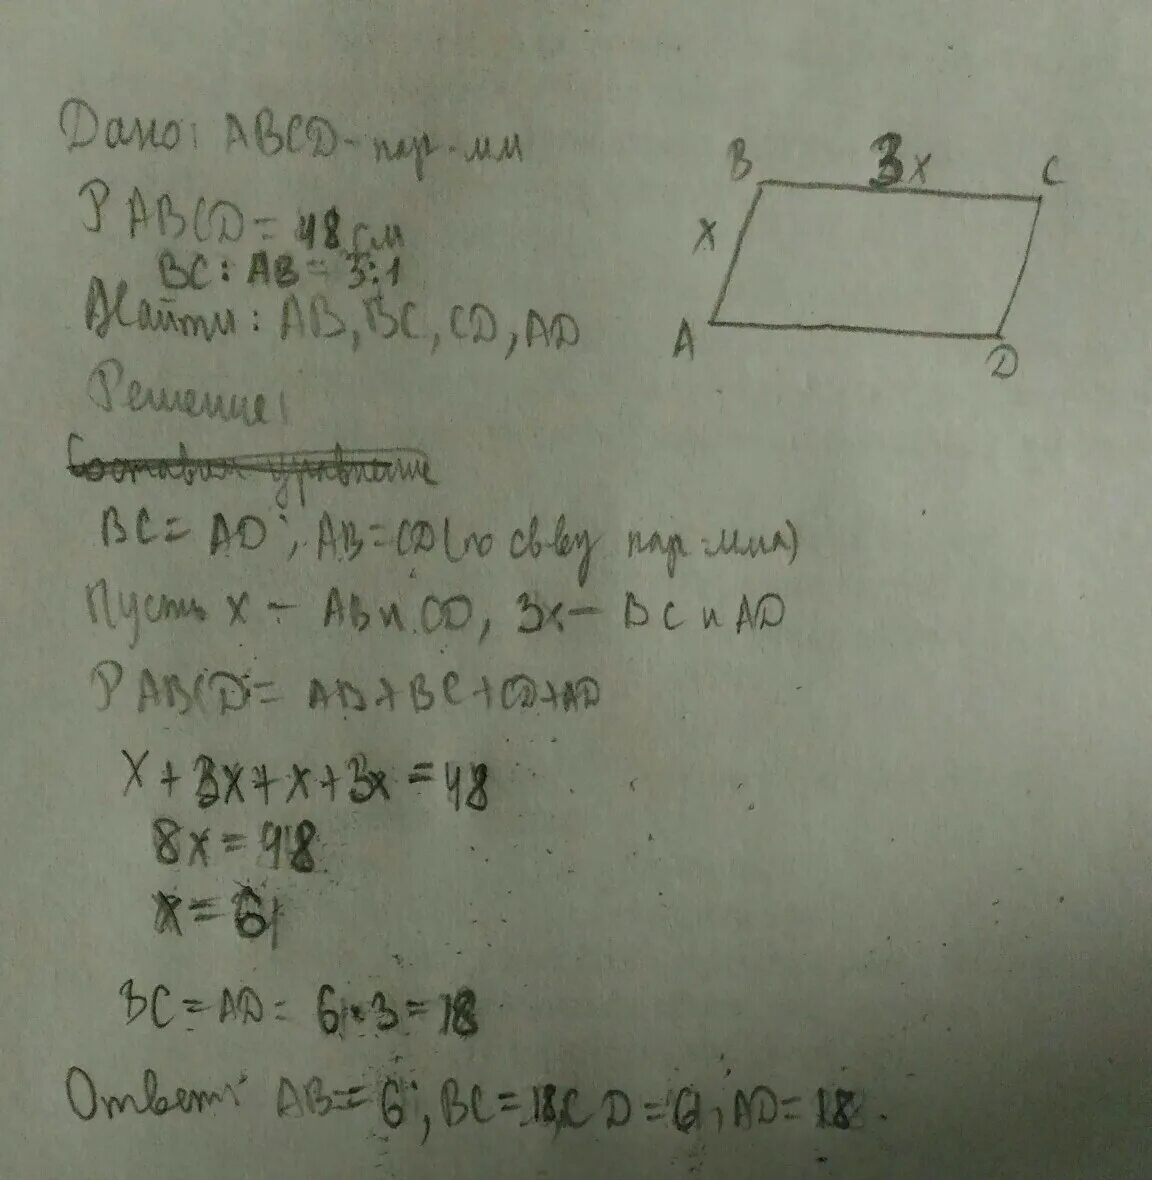 Дано: ABCD - пар-мм
P ABCD = 48 см
BC : AB = 3:1
Найти: AB, BC, CD, AD
Решение:
Составим уравнение
BC = AD ; AB = CD (по св-ву пар-мма)
Пусть x - AB и CD, 3x - BC и AD
P ABCD = AB + BC + CD + AD
x + 3x + x + 3x = 48
8x = 48
x = 6
BC = AD = 6 · 3 = 18
Ответ: AB = 6 ; BC = 18, CD = 6 ; AD = 18 .
B 3x C
x
A D